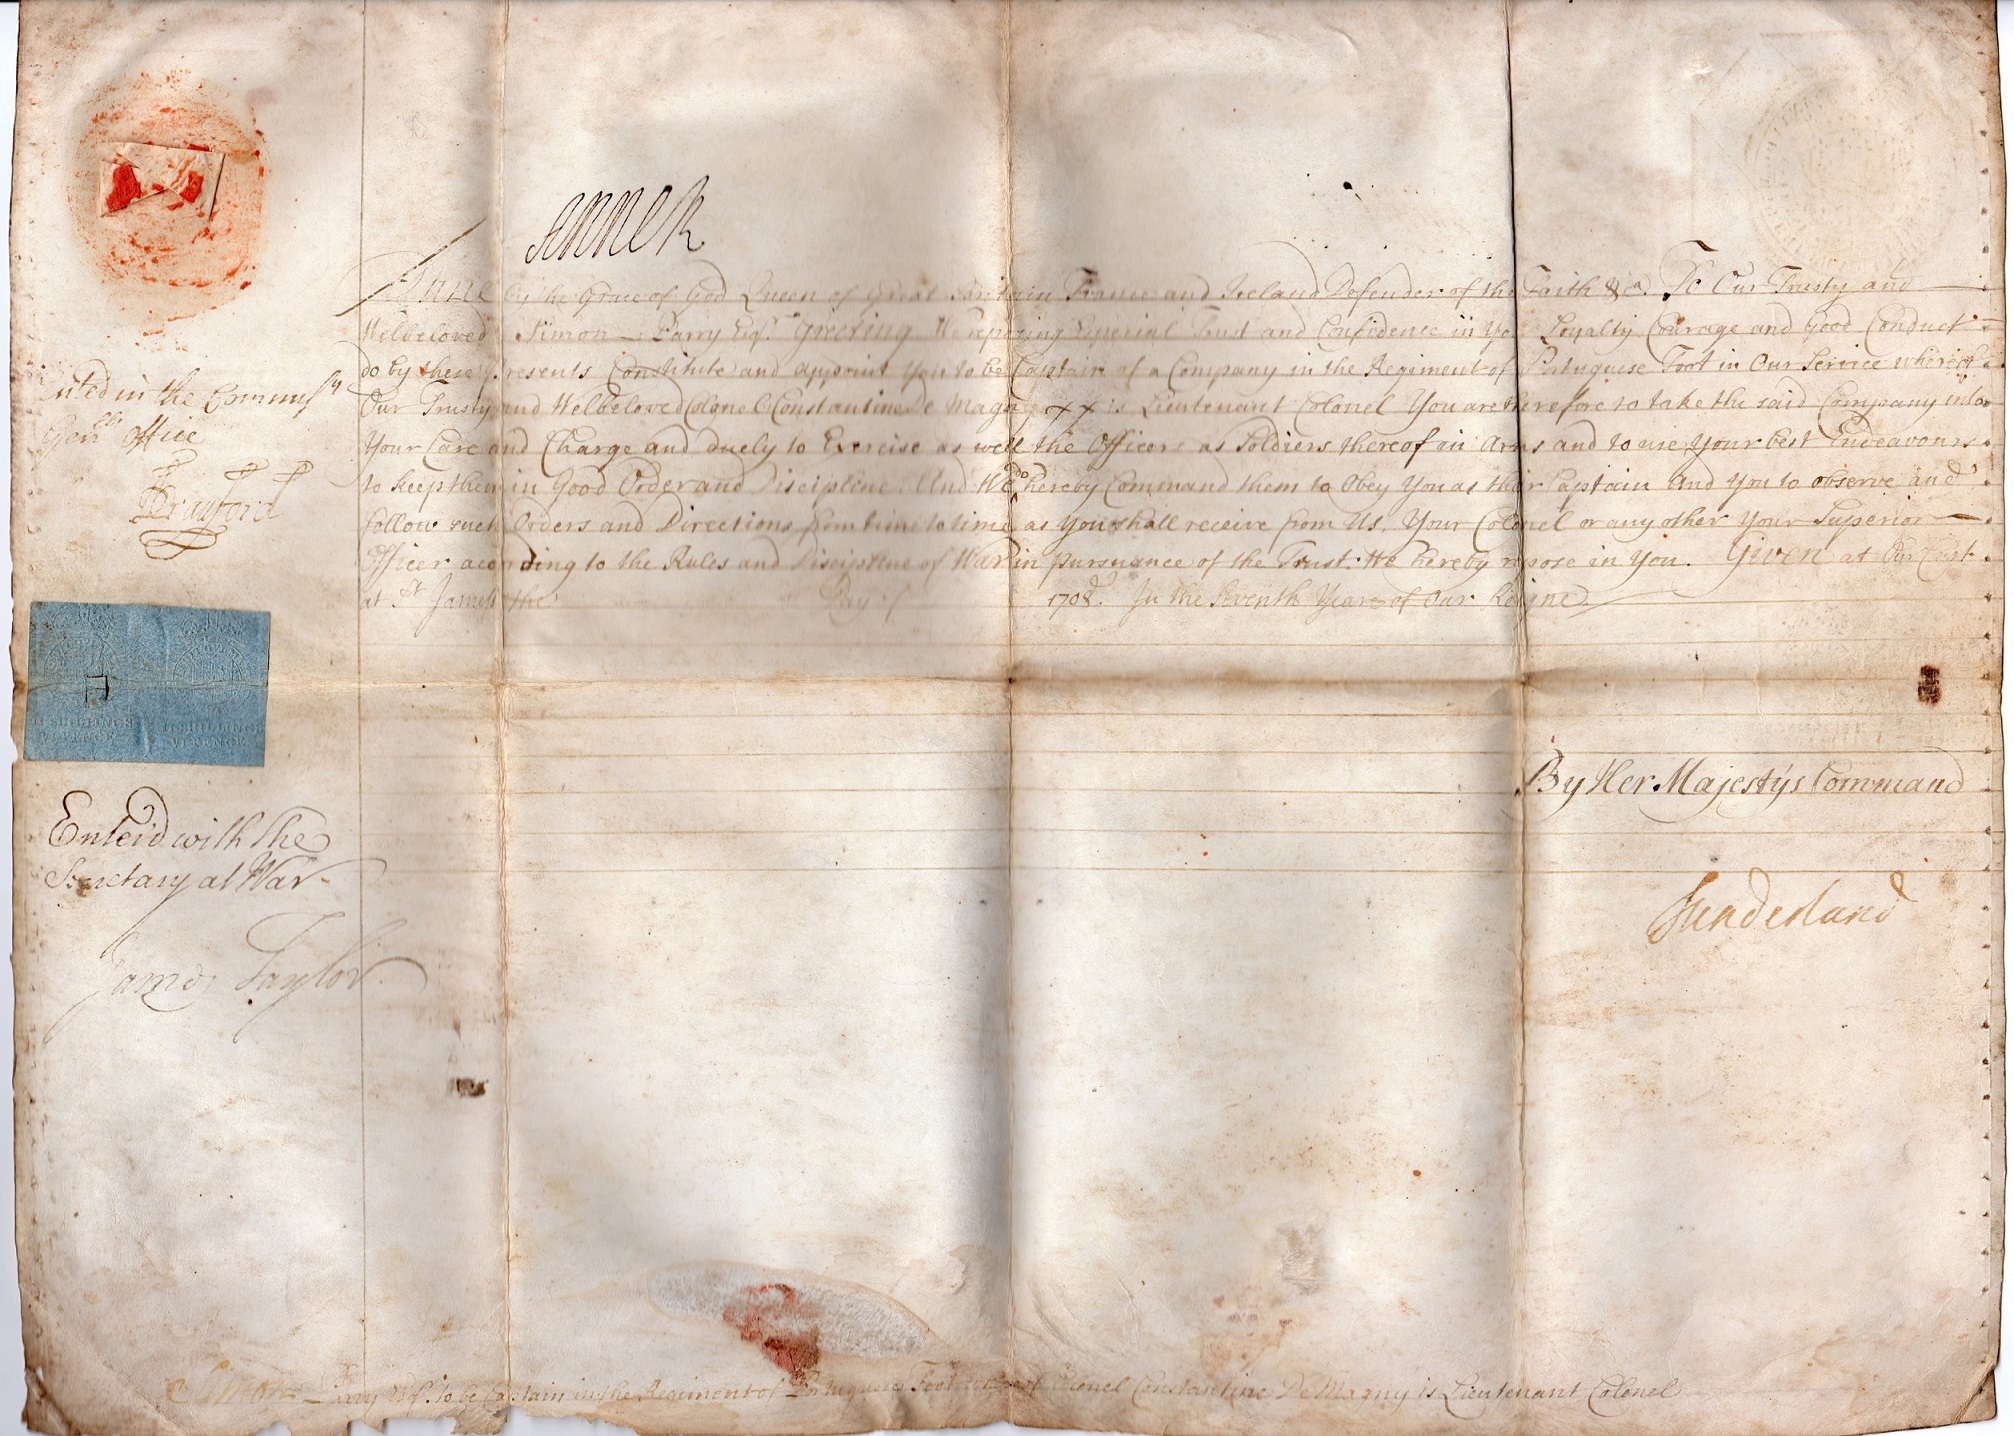 Anne R
Anne by the Grace of God Queen of Great Britain France and Ireland Defender of the Faith &c.a To Our Trusty and
Welbeloved Simon Parry Esq.r Greeting We reposing Especial Trust and Confidence in Your Loyalty Courage and Good Conduct
do by these presents Constitute and appoint You to be Captain of a Company in the Regiment of Portuguese Foot in Our Service whereof
Our Trusty and Welbeloved Colonel Constantine De Magny is Lieutenant Colonel You are therefore to take the said Company into
Your Care and Charge and duely to Exercise as well the Officers as Soldiers thereof in Arms and to use your best Endeavours
to keep them in Good Order and Discipline. And We do hereby Command them to Obey You as their Captain And You to observe and
follow such Orders and Directions from time to time as You shall receive from Us, Your Colonel or any other Your Superior
Officer according to the Rules and Discipline of War in pursuance of the Trust We hereby repose in You. Given at Our Court
at St James's the Day of 1708. In the Seventh Year of Our Reigne
in the Commissy
Genlls Office
Crauford
II SHILLINGS
VI PENCE
II SHILLINGS
VI PENCE
Enter'd with the
Secretary at War
James Taylor
By Her Majestys Command
Sunderland
Simon Parry Esq.r to be Captain in the Regiment of Portuguese Foot whereof Colonel Constantine De Magny is Lieutenant Colonel